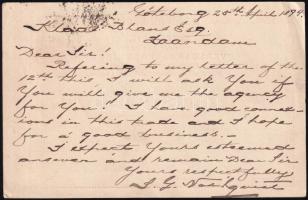 Göteborg 25th April 1897.
Klaas Blans Esq.
Zaandam
Dear Sir!
Refering to my letter of the
12th this I will ask You if
You will give me the agency
for You? I have good connec-
ions in this trade and I hope
for a good business.-
I expect Yours esteemed
answer and remain Dear Sir
Yours respectfully